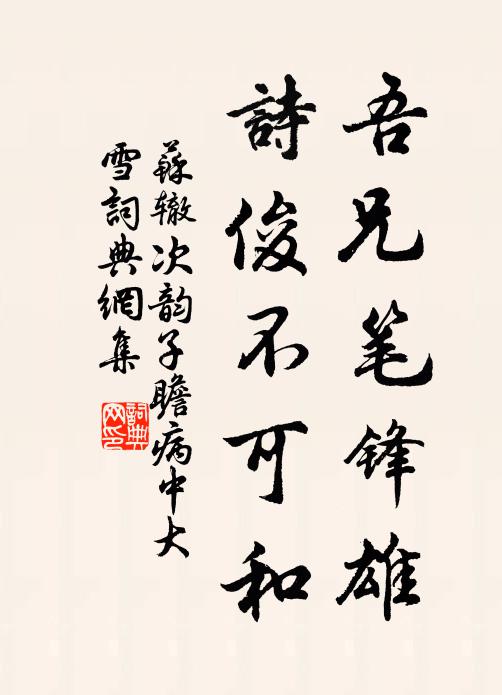 吾兄笔锋雄
詩俊不可和
蘇辙次韵子瞻病中大
雪詞典網集
詞典网印